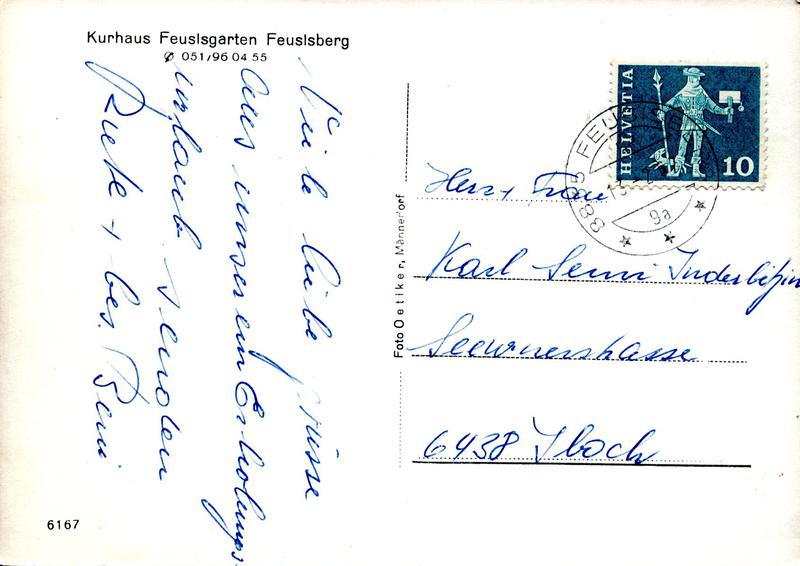 Kurhaus Feuslsgarten Feuslsberg
✆ 051/96 04 55
Viele liebe Grüsse
aus unserem Erholungs-
urlaub senden
Ruth + bes. Beni
Foto Oetiker, Männedorf
HELVETIA
10
8835 FEUSISBERG
9a
Herr + Frau
Karl Senn Inderbitzin
Seewenerstrasse
6438 Ibach
6167